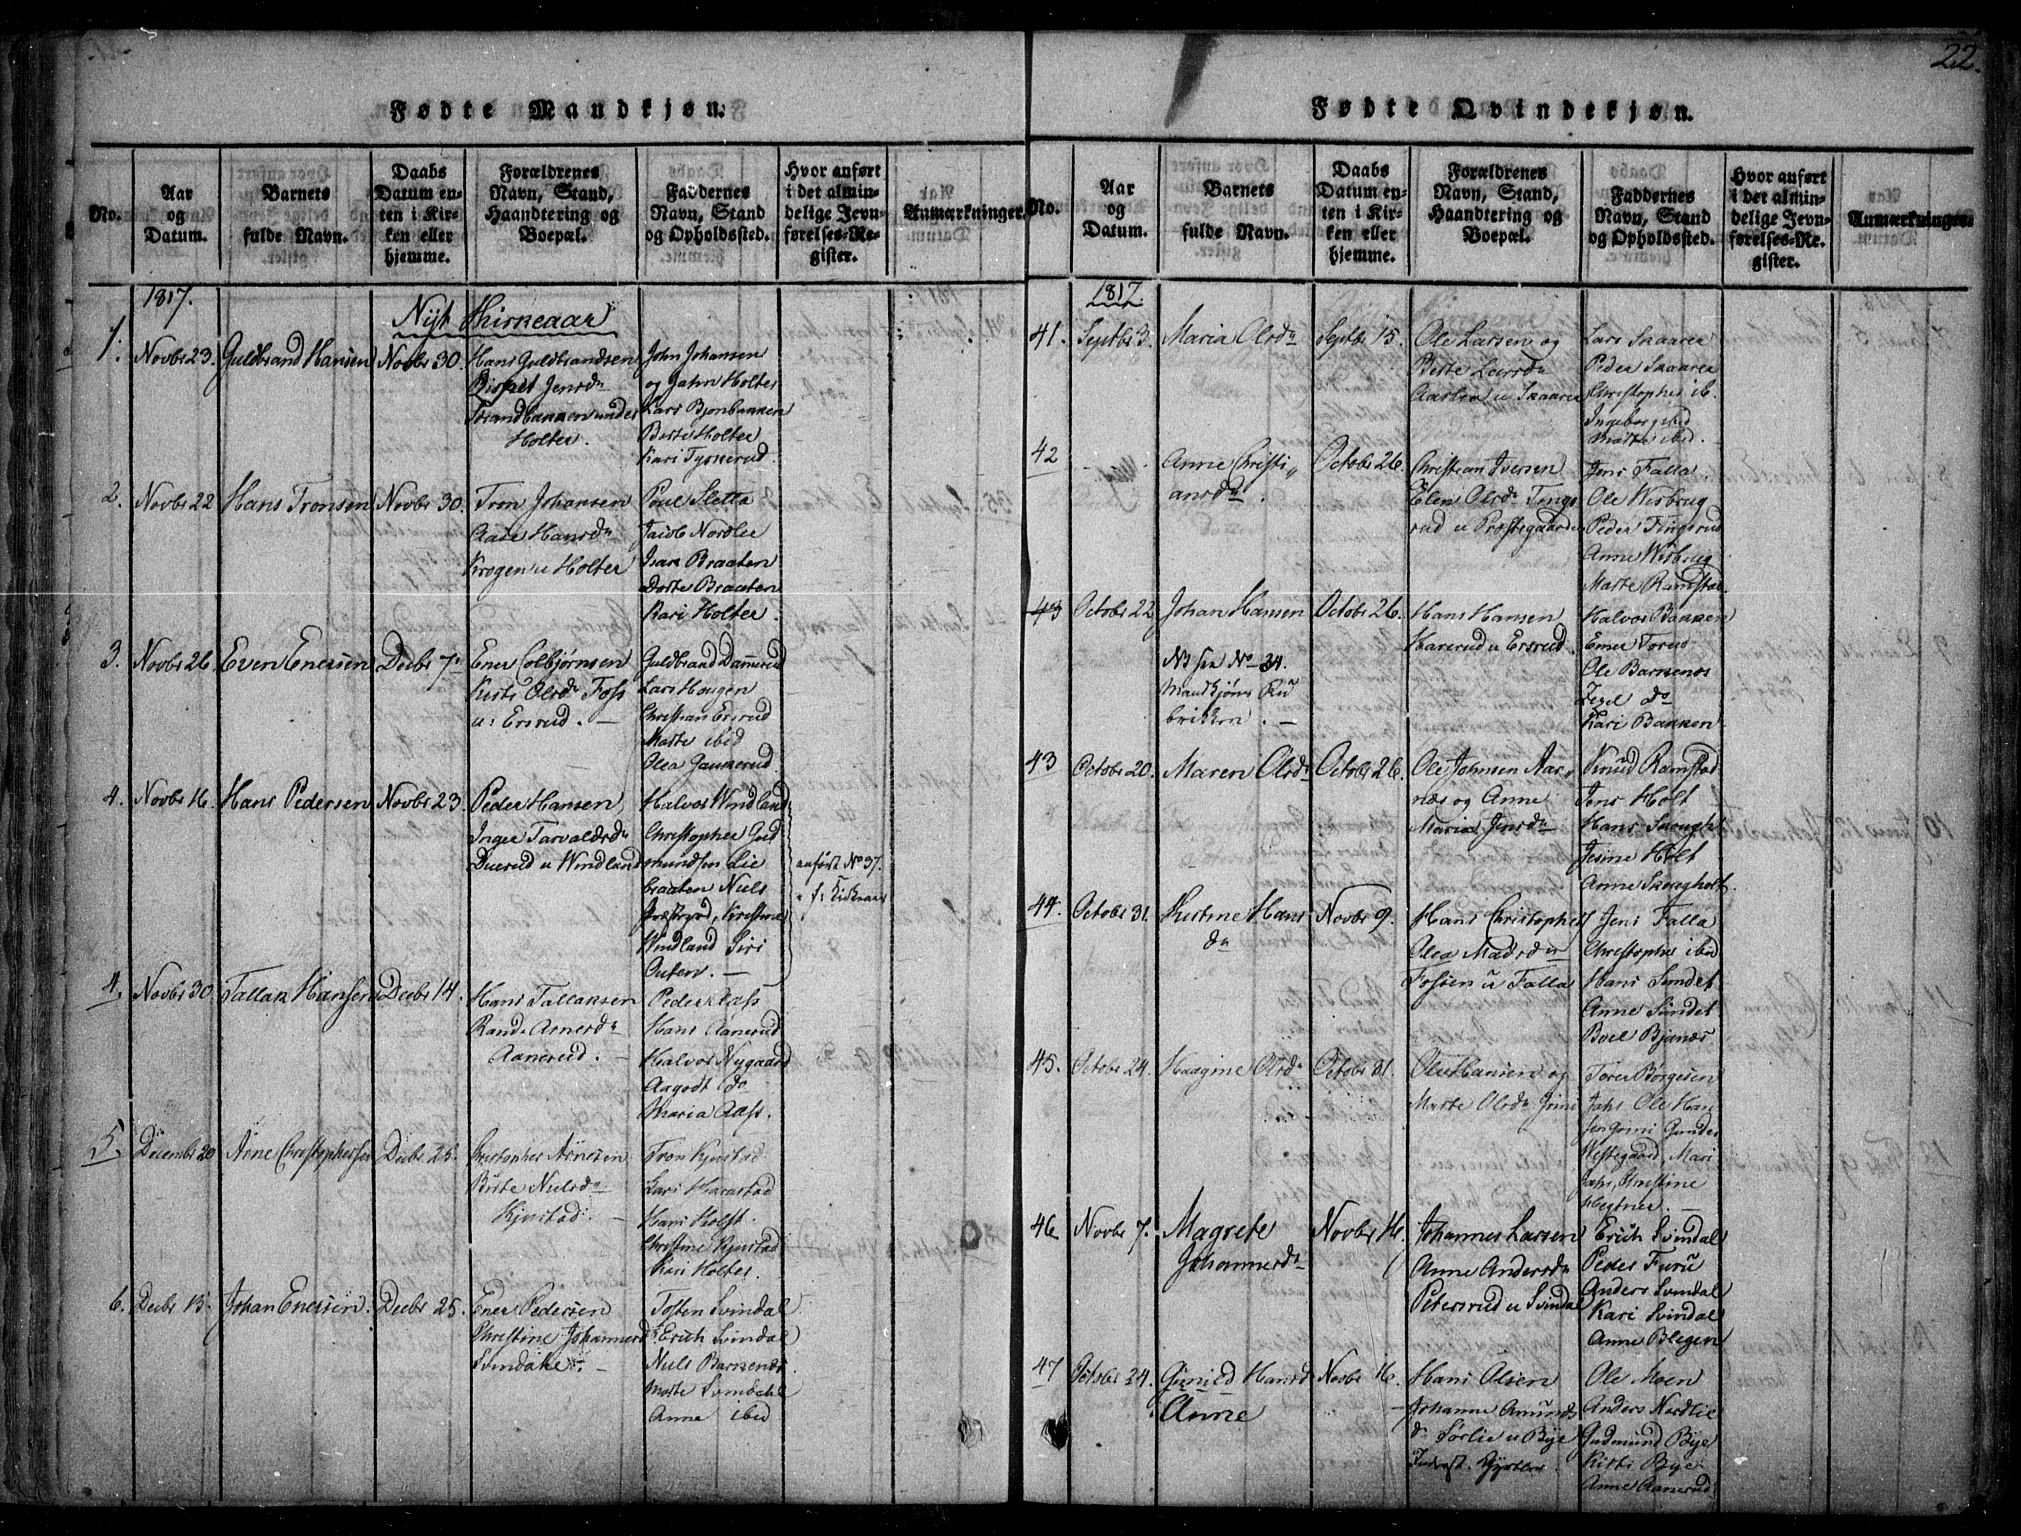 22.
Fødte Mandkjøn.
No.
Aar og Datum.
Barnets fulde Navn.
Daabs Datum enten i Kirken eller hjemme.
Forældrenes Navn, Stand, Haandtering og Boepæl.
Faddernes Navn, Stand og Opholdssted.
Hvor anført i det almindelige Jevnførelses-Register.
Anmærkninger.
1817.
Nyt Kirkeaar
1.
Novbr 23.
Guldbrand Hansen
Novbr 30.
Hans Guldbrandsen
Jensdr
Strandbakken under
Holter.
John Johansen
og Jahn Holter
Lars Bjonbakken
Berte Holter
Kari Tyskerud.
2.
Novbr 22
Hans Tronsen
Novbr 30.
Tron Johansen
Aase Hansdr
Krogen u Holter
Poul Sletta
Jacob Nordlie
Isak Braaten
Dorte Braaten
Kari Holter.
3.
Novbr 26.
Even Enersen
Decbr 7.
Ener Colbjørnsen
Kirsti Olsdr Foss
u: Ersrud. —
Guldbrand Dammerud
Lars Haugen
Christian Ersrud
Marte ibid
Olea Gaukerud.
4.
Novbr 16.
Hans Pedersen
Novbr 23.
Peder Hansen
Inger Tarvaldsdr
Duerud u Windland
Halvor Windland
Christopher Gud
mundsen Lie
braaten Niels
Kirstine
Windland Siri
Outen. —
anført No 37.
f. Kirkeaar
4.
Novbr 30.
Tallak Hansen
Decbr 14.
Hans Tallaksen
Randi Arnesdr
Aanerud. —
Peder Aass
Hans Aanerud
Halvor Nygaard
Aagodt do
Maria Aass.
5.
Decembr 20
Arne Christophersen
Decbr 25.
Christopher Arnesen
Birte Nielsdr
Kjnstad. —
Tron Kjnstad
Lars Harestad
Hans Holst.
Christine Kjnstad
Kari Holter.
6.
Decbr 13.
Johan Enersen.
Decbr 25.
Ener Pedersen
Christine Johannesd
Svindahl. —
Tosten Svindal
Erich Svindal
Niels Barknes
Marte Svindahl
Anne ibid
Fødte Qvindekjøn.
No.
Aar og Datum.
Barnets fulde Navn.
Daabs Datum enten i Kirken eller hjemme.
Forældrenes Navn, Stand, Haandtering og Boepæl.
Faddernes Navn, Stand og Opholdssted.
Hvor anført i det almindelige Jevnførelses-Register.
Anmærkninger.
1817.
41.
Septbr 3.
Maria Olsdr
Septbr 15.
Ole Larsen og
Berte Larsdr
Aaslea u Skaarer
Lars Skaarer
Peder Skaarer
Christopher ib.
Ingeborg ibid
Marte ibid.
42
Anne Christi
ansdr.
Octobr 26.
Christian Iversen
Elen Olsdr Tings
rud u Præstegaarden
Jens Falla
Ole Wesbrug
Peder Tingsrud
Anne Wesbrug
Marte Ramstad
43
Octobr 22
Johan Hansen
NB see No 34.
Mandkjøns Ru
briken. —
Octobr 26.
Hans Hansen
Harerud u Ersrud.
Halvor Bakken
Ener Torud
Ole Barkenes
Zegel do
Kari Bakken
43
Octobr 20.
Maren Olsdr
Octobr 26.
Ole Johnsen Aar
nes og Anne
Maria Jensdr
Knud Ramstad
Jens Holt
Hans Skoughl
Jesine Holt
Anne Skougholt.
44.
Octobr 31.
Kirstine Hans
dr
Novbr 9.
Hans Christopher
Olea Madsdr
Fossen u Falla
Jens Falla
Christopher ibid
Hans Sundet
Anne Sundet
Boel Bjanes
45.
Octobr 24.
Haagine Olsdr
Octobr 31.
Ole Hansen og
Marte Olsdr
Torer Børgesen
Jahr Ole Han
sen Gunder
Westegaard, Mari
Jahr, Christine
Heftner. —
46
Novbr 7.
Magrete
Johannesdr
Novbr 16.
Johannes Larsen
Anne Andersdr
Petersrud u Svindal
Erich Svindal
Peder Furu
Anders Svindal
Kari Svindal
Anne Blegen
47
Octobr 24.
Gunild Hansd
Anne
Novbr 16.
Hans Olsen
Johanne Amunds
dr Sørlie u Bye
Ole Moen
Anders Nordlie
Gudmund Bye
Kirsti Bye
Anne Aanerud.